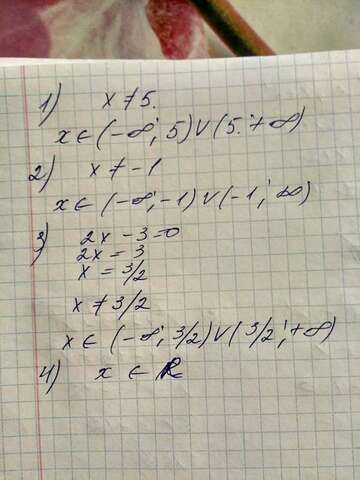 1) x ≠ 5.
x ∈ (-∞; 5) ∪ (5; +∞)
2) x ≠ -1
x ∈ (-∞; -1) ∪ (-1; +∞)
3) 2x - 3 = 0
2x = 3
x = 3/2
x ≠ 3/2
x ∈ (-∞; 3/2) ∪ (3/2; +∞)
4) x ∈ R